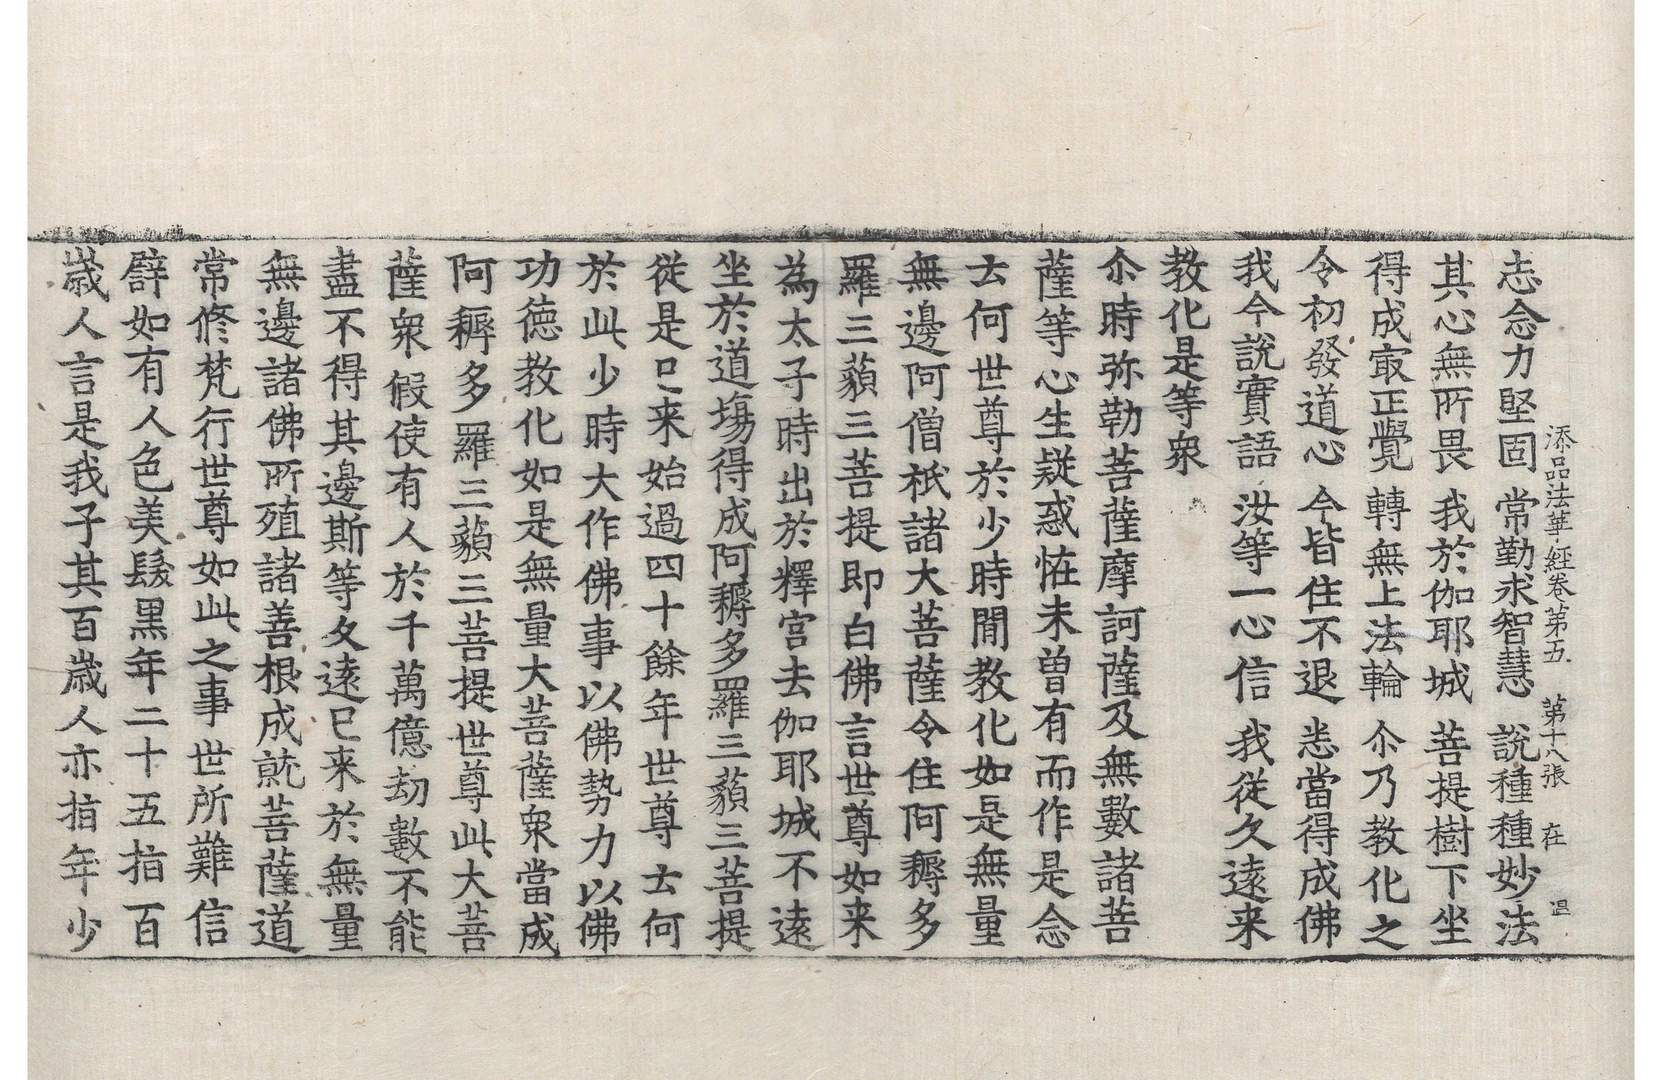 添品法華經卷第五　第十八張　在　𥁕
志念力堅固　常勤求智慧　說種種妙法
其心無所畏　我於伽耶城　菩提樹下坐
得成㝡正覺　轉無上法輪　尒乃教化之
令初發道心　今皆住不退　悉當得成佛
我今說實語　汝等一心信　我從久遠来
教化是等衆
尒時弥勒菩薩摩訶薩及無數諸菩
薩等心生疑惑恠未曽有而作是念
云何世尊於少時閒教化如是無量
無邊阿僧祇諸大菩薩令住阿耨多
羅三藐三菩提即白佛言世尊如来
為太子時出於釋宮去伽耶城不遠
坐於道塲得成阿耨多羅三藐三菩提
從是已来始過四十餘年世尊云何
於此少時大作佛事以佛勢力以佛
功德教化如是無量大菩薩衆當成
阿耨多羅三藐三菩提世尊此大菩
薩衆假使有人於千萬億劫數不能
盡不得其邊斯等久遠已来於無量
無邊諸佛所殖諸善根成就菩薩道
常修梵行世尊如此之事世所難信
譬如有人色美髮黑年二十五指百
歲人言是我子其百歲人亦指年少